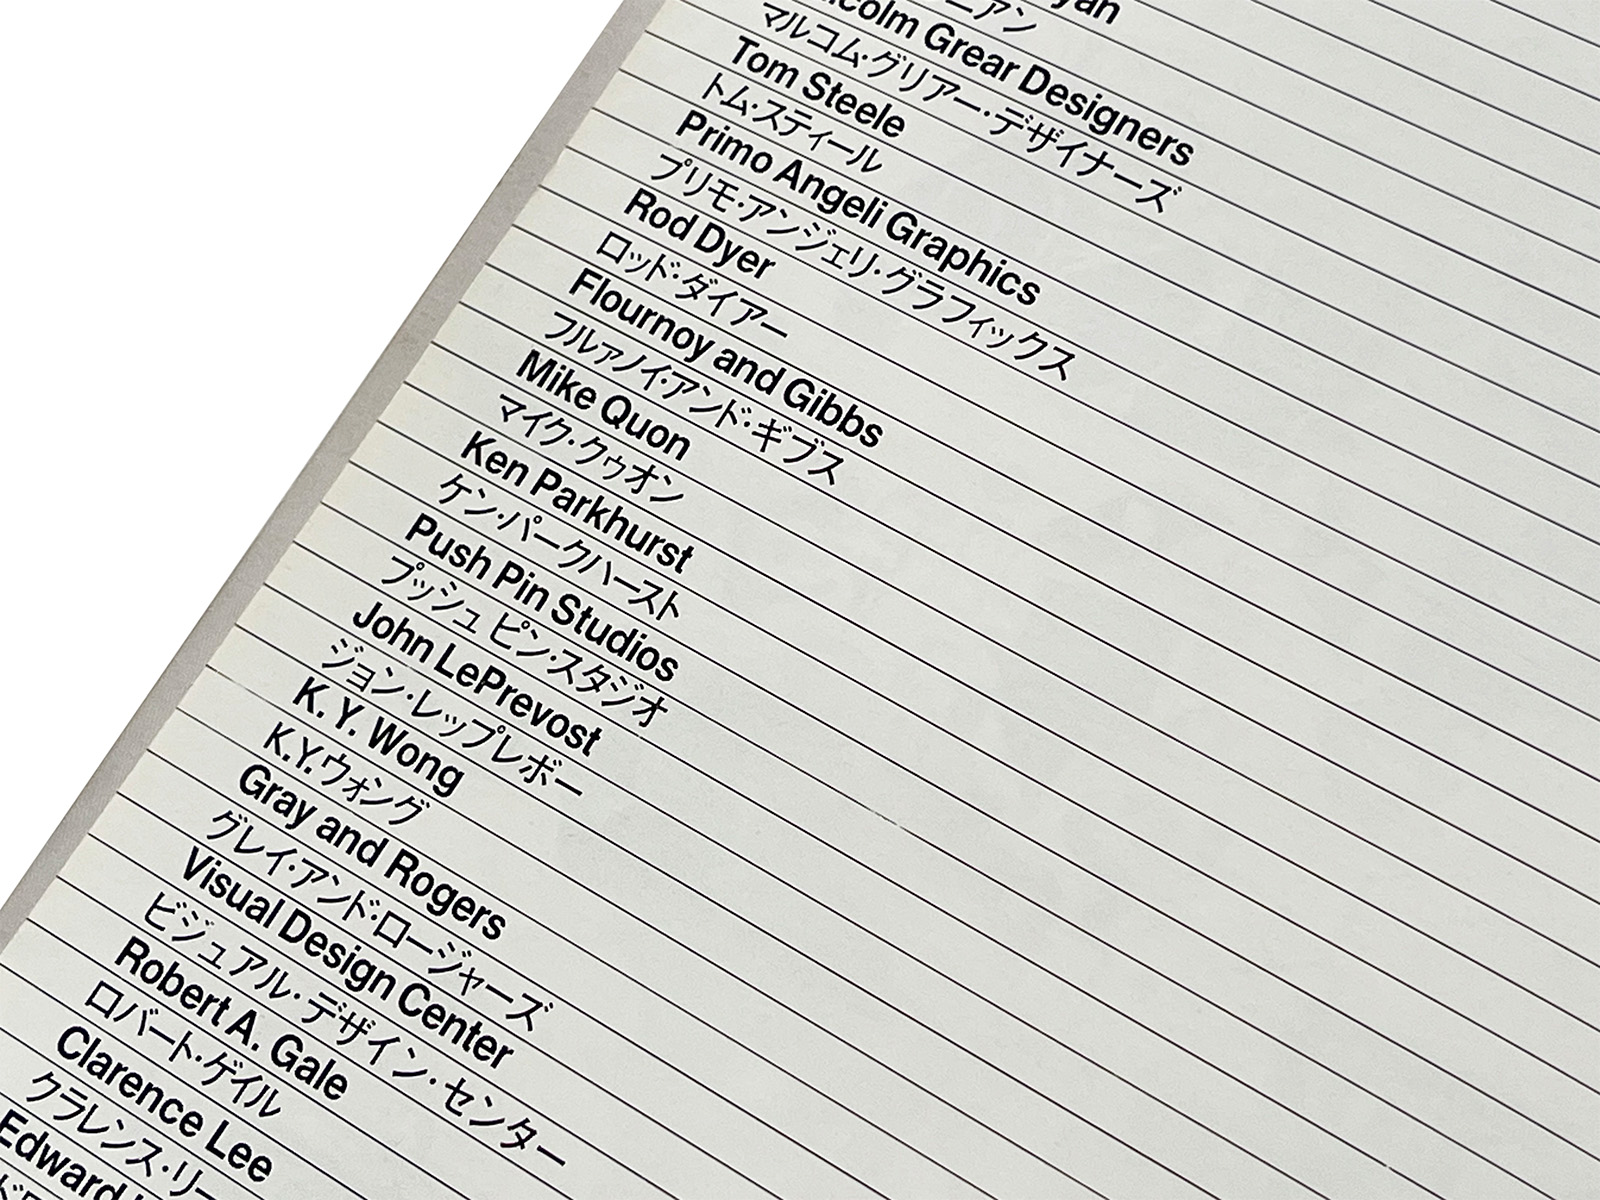 ニアン
Grear Designers
マルコム・グリアー・デザイナーズ
Tom Steele
トム・スティール
Primo Angeli Graphics
プリモ・アンジェリ・グラフィックス
Rod Dyer
ロッド・ダイアー
Flournoy and Gibbs
フルァノイ・アンド・ギブス
Mike Quon
マイク・クゥオン
Ken Parkhurst
ケン・パークハースト
Push Pin Studios
プッシュ ピン・スタジオ
John LePrevost
ジョン・レップレボー
K. Y. Wong
K.Y.ウォング
Gray and Rogers
グレイ・アンド・ロージャーズ
Visual Design Center
ビジュアル・デザイン・センター
Robert A. Gale
ロバート・ゲイル
Clarence Lee
クラレンス・リー
Edward